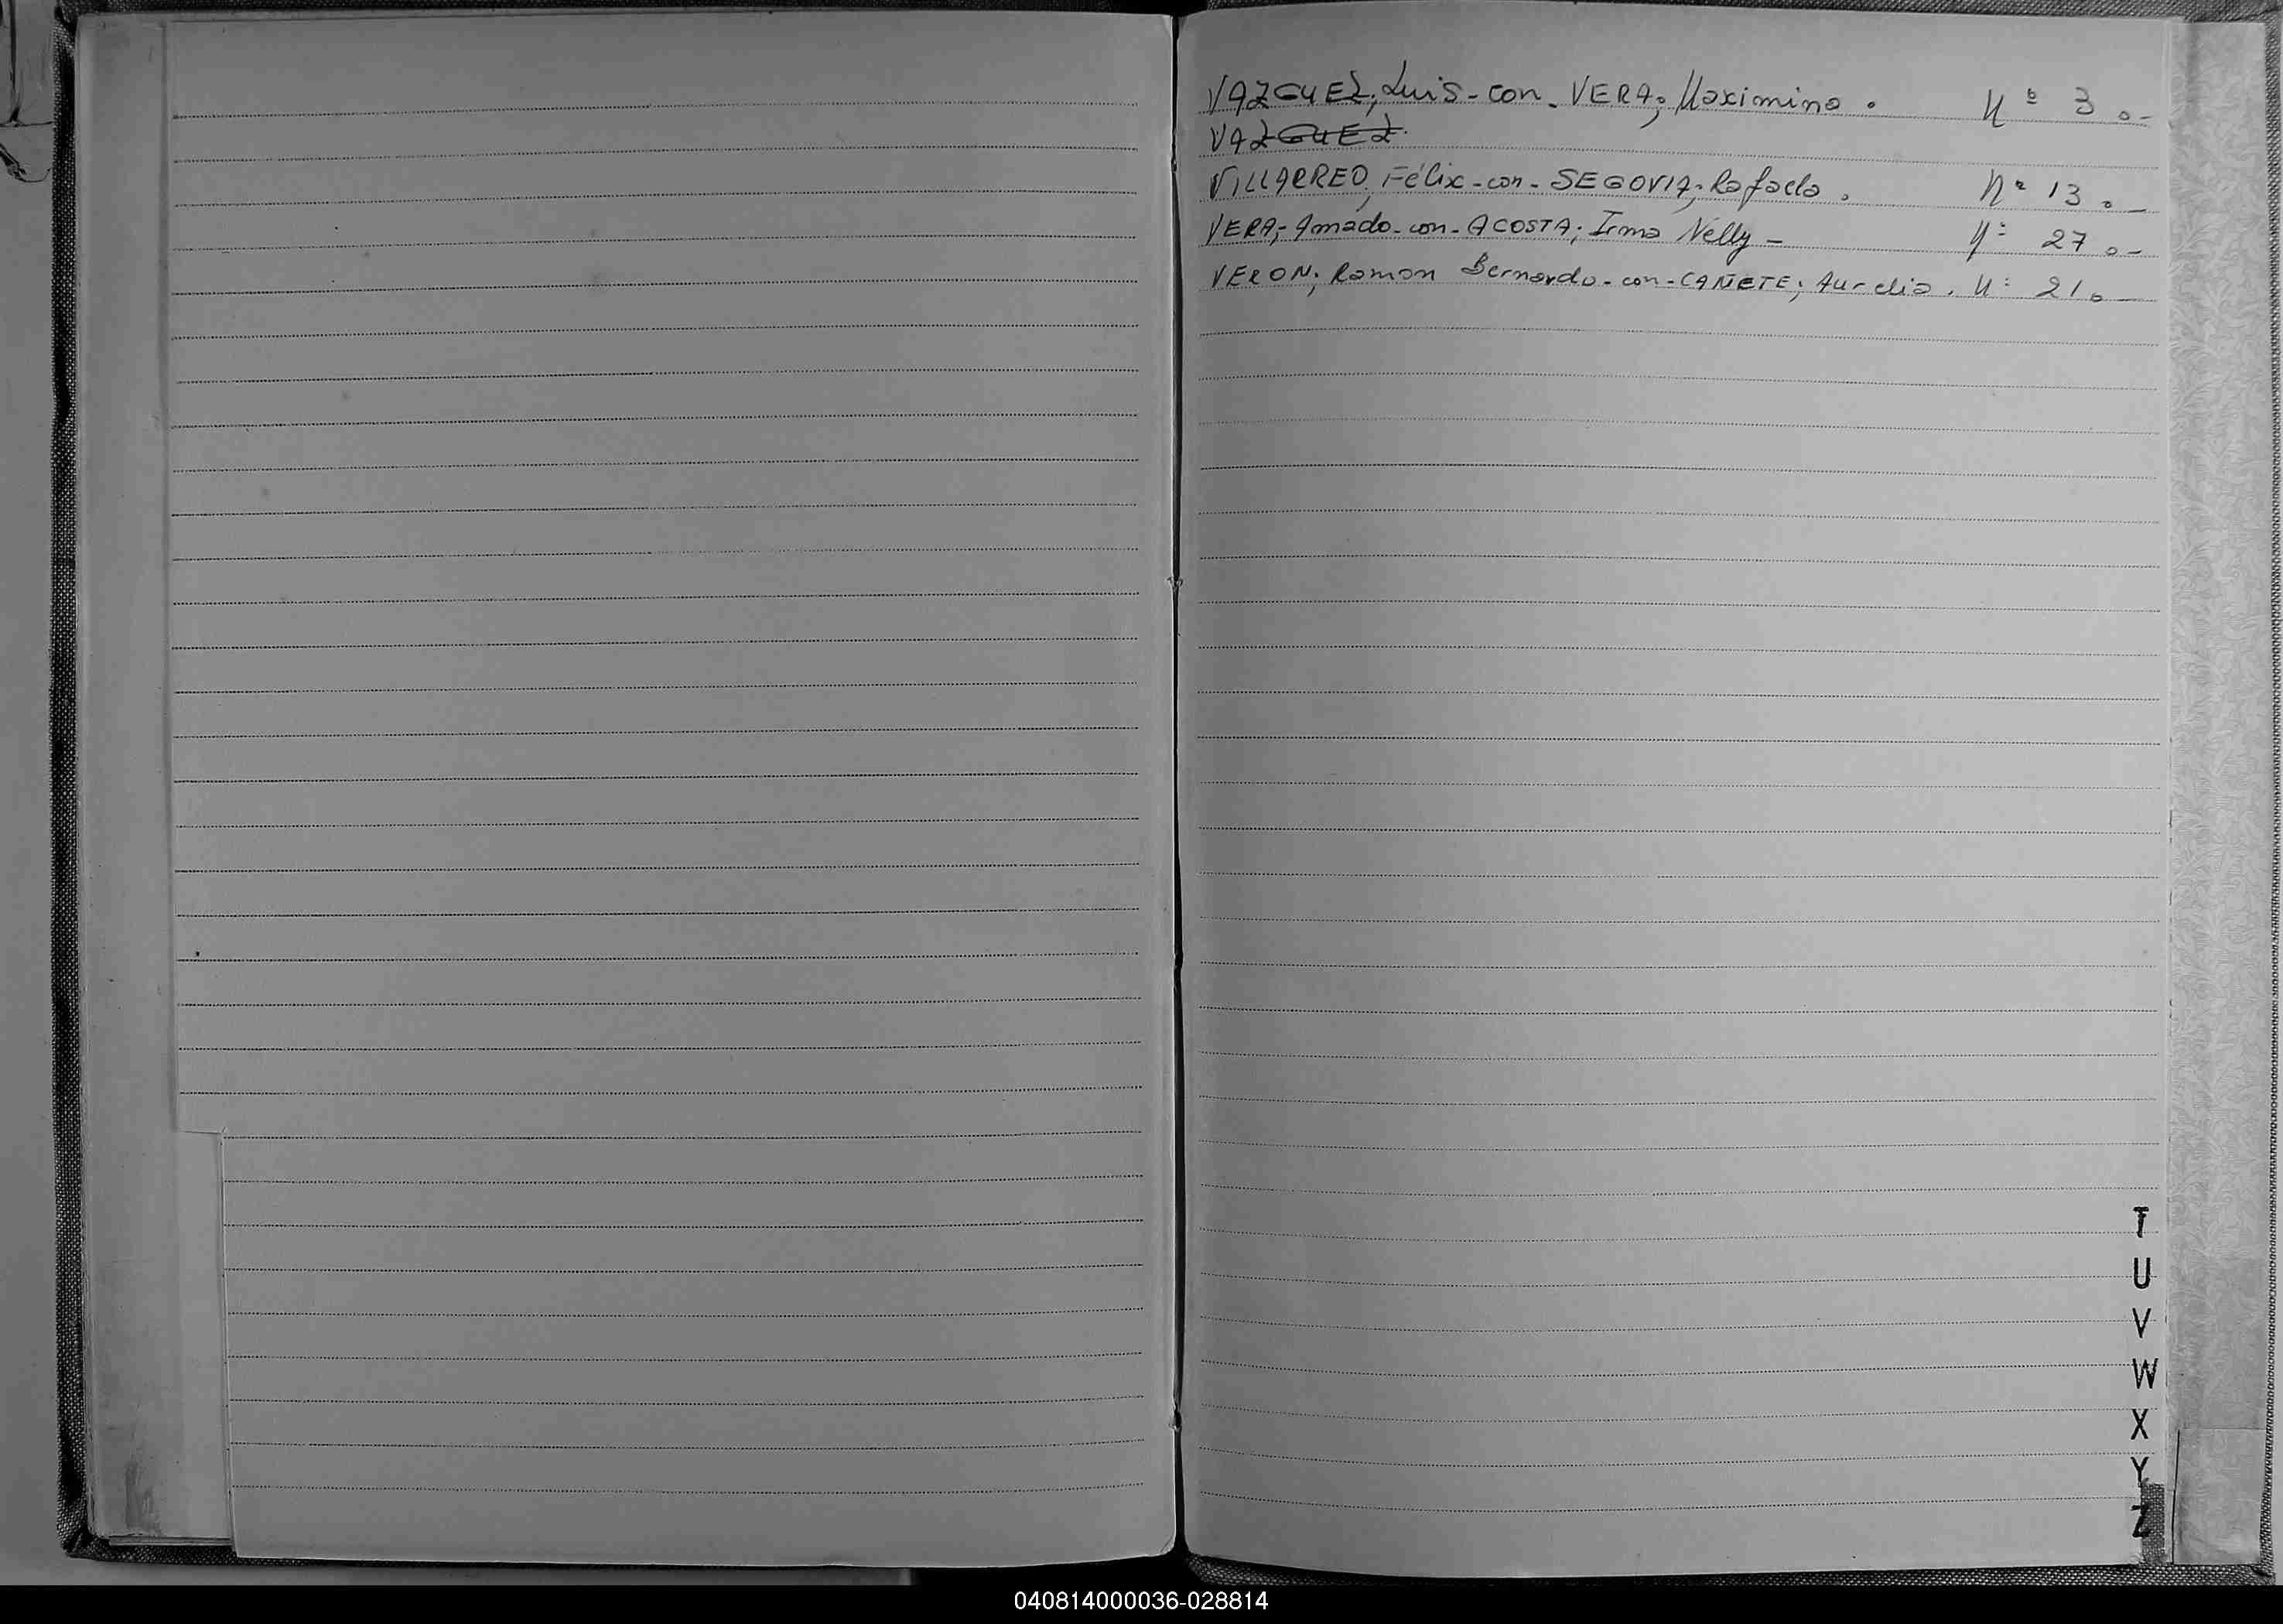 VAZGUEZ; Luis - con - VERA; Maximina . Nº 3.-
VAZGUEZ
VILLARREO, Félix - con - SEGOVIA; Rafaela . Nº 13.-
VERA; Amado - con - ACOSTA; Irma Nelly - Nº 27.-
VERON; Ramon Bernardo - con - CAÑETE; Aurelia . Nº 21.-
T
U
V
W
X
Y
Z
040814000036-028814